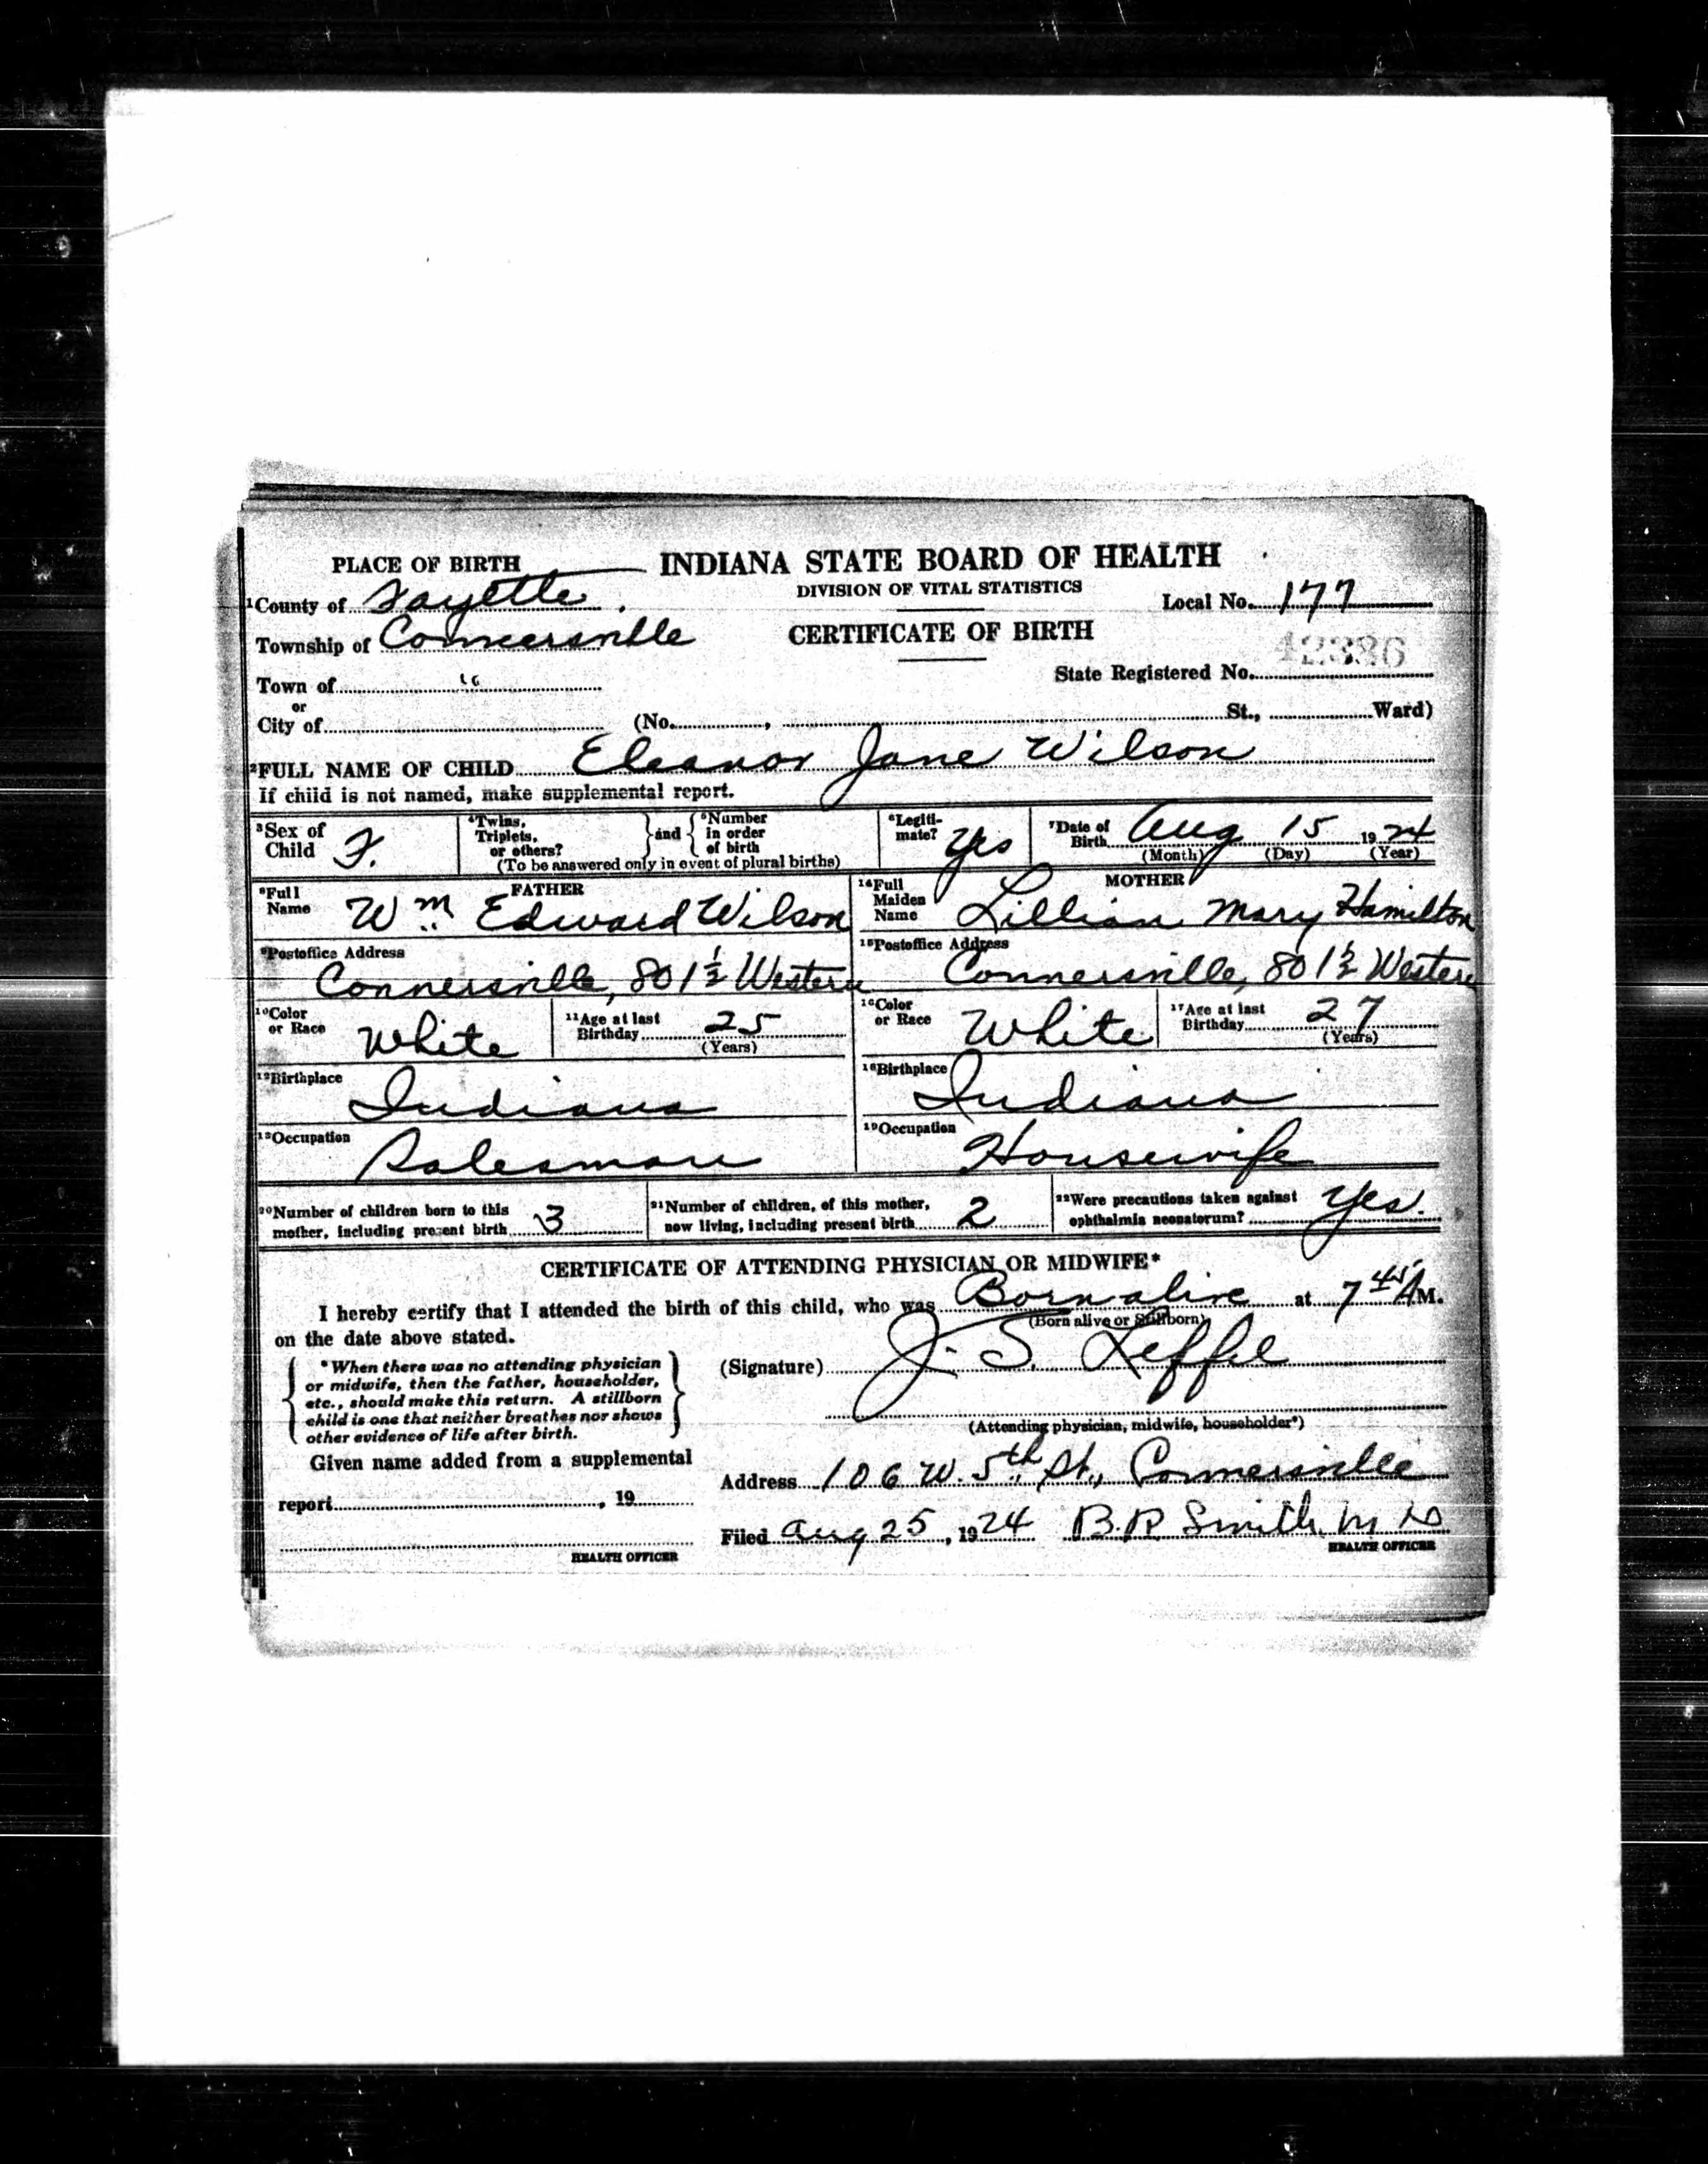 PLACE OF BIRTH
INDIANA STATE BOARD OF HEALTH
DIVISION OF VITAL STATISTICS
1County of Fayette.
Local No. 177
Township of Connersville
CERTIFICATE OF BIRTH
42386
State Registered No.
Town of "
or
City of (No. , St., Ward)
2FULL NAME OF CHILD Eleanor Jane Wilson
If child is not named, make supplemental report.
3Sex of Child F.
4Twins, Triplets, or others? } and { 5Number in order of birth
(To be answered only in event of plural births)
6Legiti-mate? Yes
7Date of Birth Aug 15 1924
(Month) (Day) (Year)
FATHER
8Full Name Wm. Edward Wilson
MOTHER
14Full Maiden Name Lillian Mary Hamilton
9Postoffice Address
Connersville, 801½ Western
15Postoffice Address
Connersville, 801½ Western
10Color or Race White
11Age at last Birthday 25
(Years)
16Color or Race White
17Age at last Birthday 27
(Years)
12Birthplace
Indiana
18Birthplace
Indiana
13Occupation
Salesman
19Occupation
Housewife
20Number of children born to this mother, including present birth 3
21Number of children, of this mother, now living, including present birth 2
22Were precautions taken against ophthalmia neonatorum? Yes.
CERTIFICATE OF ATTENDING PHYSICIAN OR MIDWIFE*
I hereby certify that I attended the birth of this child, who was Born alive at 7 45 A M.
(Born alive or Stillborn)
on the date above stated.
*When there was no attending physician
or midwife, then the father, householder,
etc., should make this return. A stillborn
child is one that neither breathes nor shows
other evidence of life after birth.
(Signature) J. S. Leffel
(Attending physician, midwife, householder*)
Given name added from a supplemental
report , 19
HEALTH OFFICER
Address 106 W. 5th St., Connersville
Filed Aug 25, 1924 B.R. Smith M D
HEALTH OFFICER